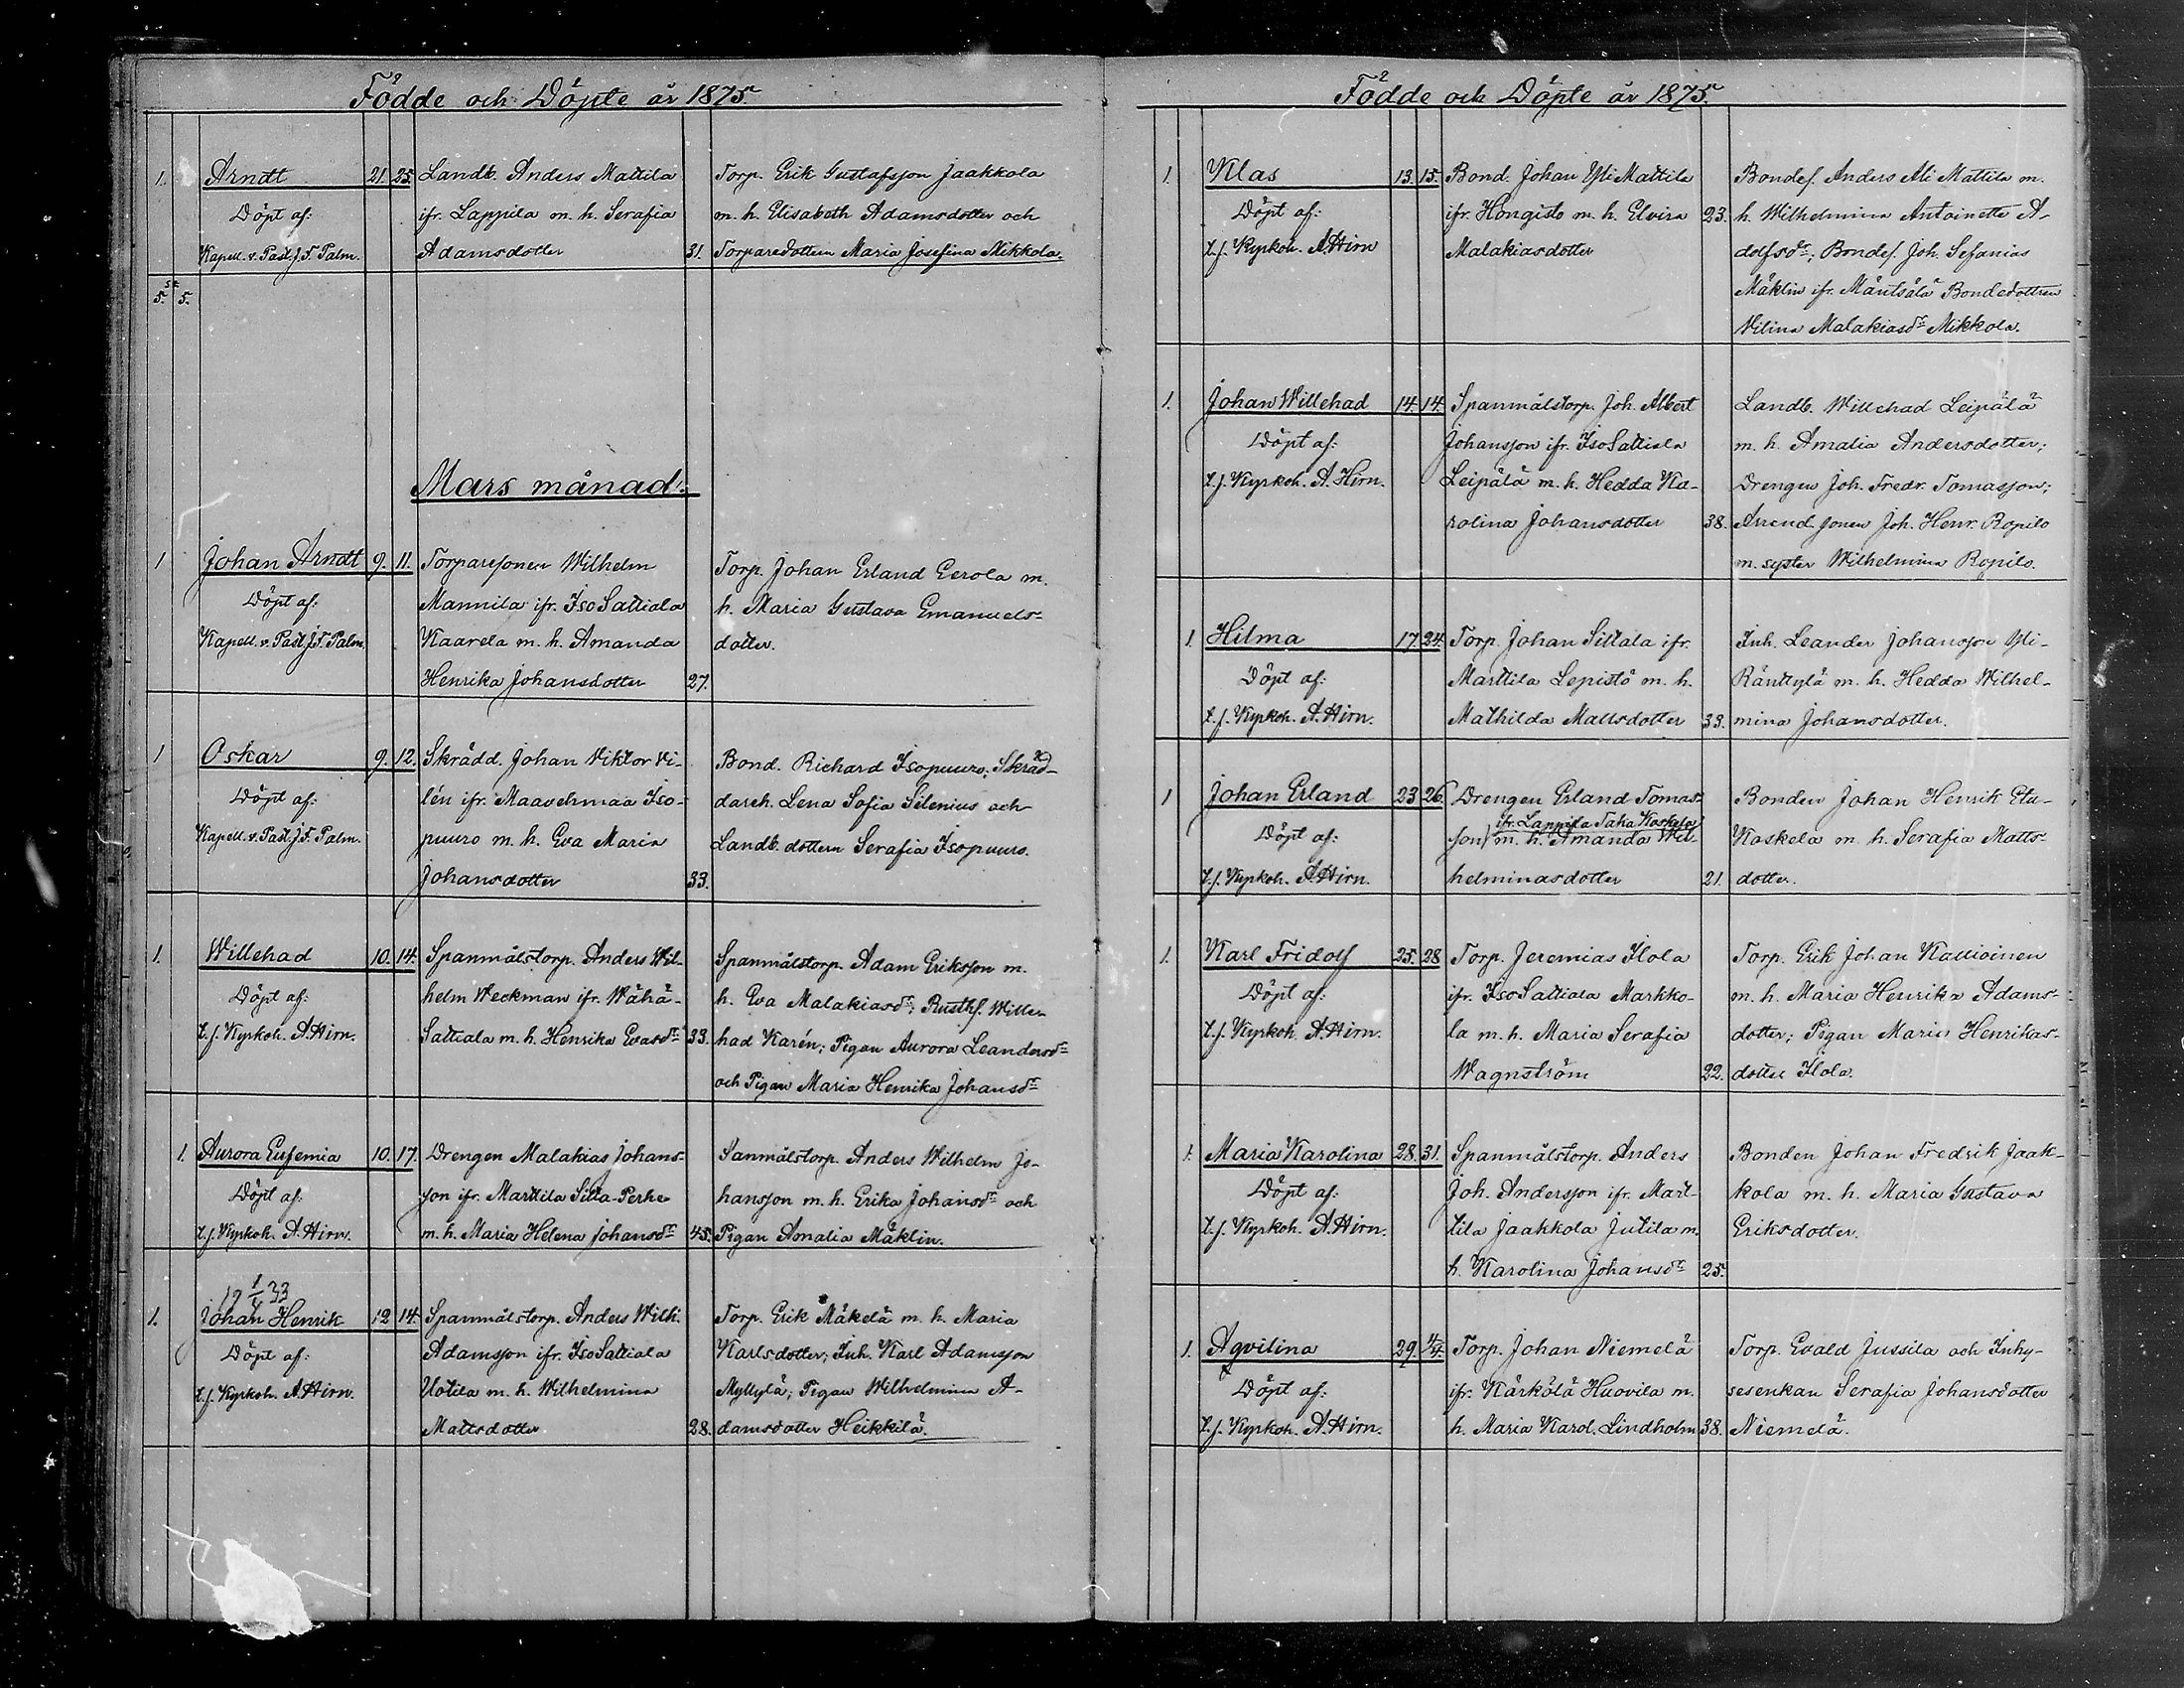 Födde och Döpte år 1875.
1. Arndt 21. 25. Landb. Anders Mattila Torp. Erik Gustafsson Jaakkola
Döpt af: ifr. Lappila m. h. Serafia m. h. Elisabeth Adamsdotter och
Kapell. v. Past. J. F. Palm. Adamsdotter 31. Torparedottern Maria Josefina Mikkola.
5. 5.
Mars månad.
1 Johan Arndt 9. 11. Torparesonen Wilhelm Torp. Johan Erland Eerola m.
Döpt af: Mannila ifr. IsoSattiala h. Maria Gustava Emanuels-
Kapell. v. Past. J. F. Palm. Kaarela m. h. Amanda dotter.
Henrika Johansdotter 27.
1 Oskar 9. 12. Skrädd. Johan Viktor Vi- Bond. Richard Isopuuro; Skräd-
Döpt af: lén ifr. Maavehmaa Iso- dareh. Lena Sofia Silenius och
Kapell. v. Past. J. F. Palm. puuro m. h. Eva Maria Landb. dottern Serafia Isopuuro.
Johansdotter 33.
1. Willehad 10. 14. Spanmålstorp. Anders Wil- Spanmålstorp. Adam Eriksson m.
Döpt af: helm Weckman ifr. Wähä- h. Eva Malakiasdr; Rusth. Wille-
t. f. Kyrkoh. A. Hirn. Sattiala m. h. Henrika Evasdr 33. had Karén; Pigan Aurora Leandersdr
och Pigan Maria Henrika Johansdr
1. Aurora Eufemia 10. 17. Drengen Malakias Johans- Sanmålstorp. Anders Wilhelm Jo-
Döpt af: son ifr. Marttila Silta-Perhe hansson m. h. Erika Johansdr och
t. f. Kyrkoh. A. Hirn. m. h. Maria Helena Johansdr 45. Pigan Amalia Mäklin.
19 33
1. Johan Henrik 12 14. Spanmålstorp. Anders Wilh. Torp. Erik Mäkelä m. h. Maria
Döpt af: Adamsson ifr. IsoSattiala Karlsdotter; Inh. Karl Adamsson
t. f. Kyrkoh. A. Hirn. Uotila m. h. Wilhelmina Myllylä; Pigan Wilhelmina A-
Mattsdotter 28. damsdotter Heikkilä.
Födde och Döpte år 1875.
1. Klas 13. 15. Bond. Johan Yli Mattila Bondes. Anders Ali Mattila m.
Döpt af: ifr. Hongisto m. h. Elvira 23. h. Wilhelmina Antoinette A-
t. f. Kyrkoh. A. Hirn Malakiasdotter dolfsdr; Bondes. Joh. Sefanias
Mäklin ifr. Mäntsälä Bondedottren
Vilina Malakiasdr Mikkola.
1. Johan Willehad 14. 14. Spanmålstorp. Joh. Albert Landb. Willehad Leipälä
Döpt af: Johansson ifr. IsoSattiala m. h. Amalia Andersdotter;
t. f. Kyrkoh. A. Hirn. Leipälä m. h. Hedda Ka- Drengen Joh. Fredr. Tomasson;
rolina Johansdotter 38. Arrend. sonen Joh. Henr. Ropilo
m. syster Wilhelmina Ropilo.
1. Hilma 17. 24. Torp. Johan Siltala ifr. Inh. Leander Johansson Yli-
Döpt af: Marttila Lepistö m. h. Ränttylä m. h. Hedda Wilhel-
t. f. Kyrkoh. A. Hirn. Mathilda Mattsdotter 33. mina Johansdotter.
1 Johan Erland 23 26. Drengen Erland Tomas- Bonden Johan Henrik Etu-
ifr. Lappila Taka Kaskela
Döpt af: son m. h. Amanda Wil- Kaskela m. h. Serafia Matts-
t. f. Kyrkoh. A. Hirn. helminasdotter 21. dotter.
1. Karl Fridolf 25. 28 Torp. Jeremias Ilola Torp. Erik Johan Kallioinen
Döpt af: ifr. IsoSattiala Markko- m. h. Maria Henrika Adams-
t. f. Kyrkoh. A. Hirn. la m. h. Maria Serafia dotter; Pigan Maria Henrikas-
Wagnström 22. dotter Ilola.
1. Maria Karolina 28. 31. Spanmålstorp. Anders Bonden Johan Fredrik Jaak-
Döpt af: Joh. Andersson ifr. Mart- kola m. h. Maria Gustava
t. f. Kyrkoh. A. Hirn. tila Jaakkola Jutila m. Eriksdotter.
h. Karolina Johansdr 25.
1. Aqvilina 29. 4/4. Torp. Johan Niemelä Torp. Evald Jussila och Inhy-
Döpt af: ifr. Kärkölä Huovila m. sesenkan Serafia Johansdotter
t. f. Kyrkoh. A. Hirn. h. Maria Karol. Lindholm 38. Niemelä.